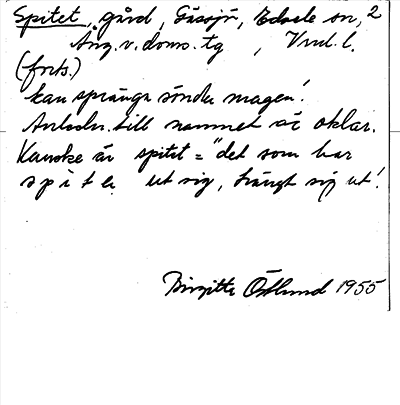 Spitet, gård, Gåssjö, Edsele sn, 2
Ång. v. doms. tg, Vrml. l.
(forts.)
kan spränga sönder magen!
Anledn. till namnet är oklar.
Kanske är spitet = "det som har
spita ut sig, trängt sig ut!
Birgitta Östlund 1955